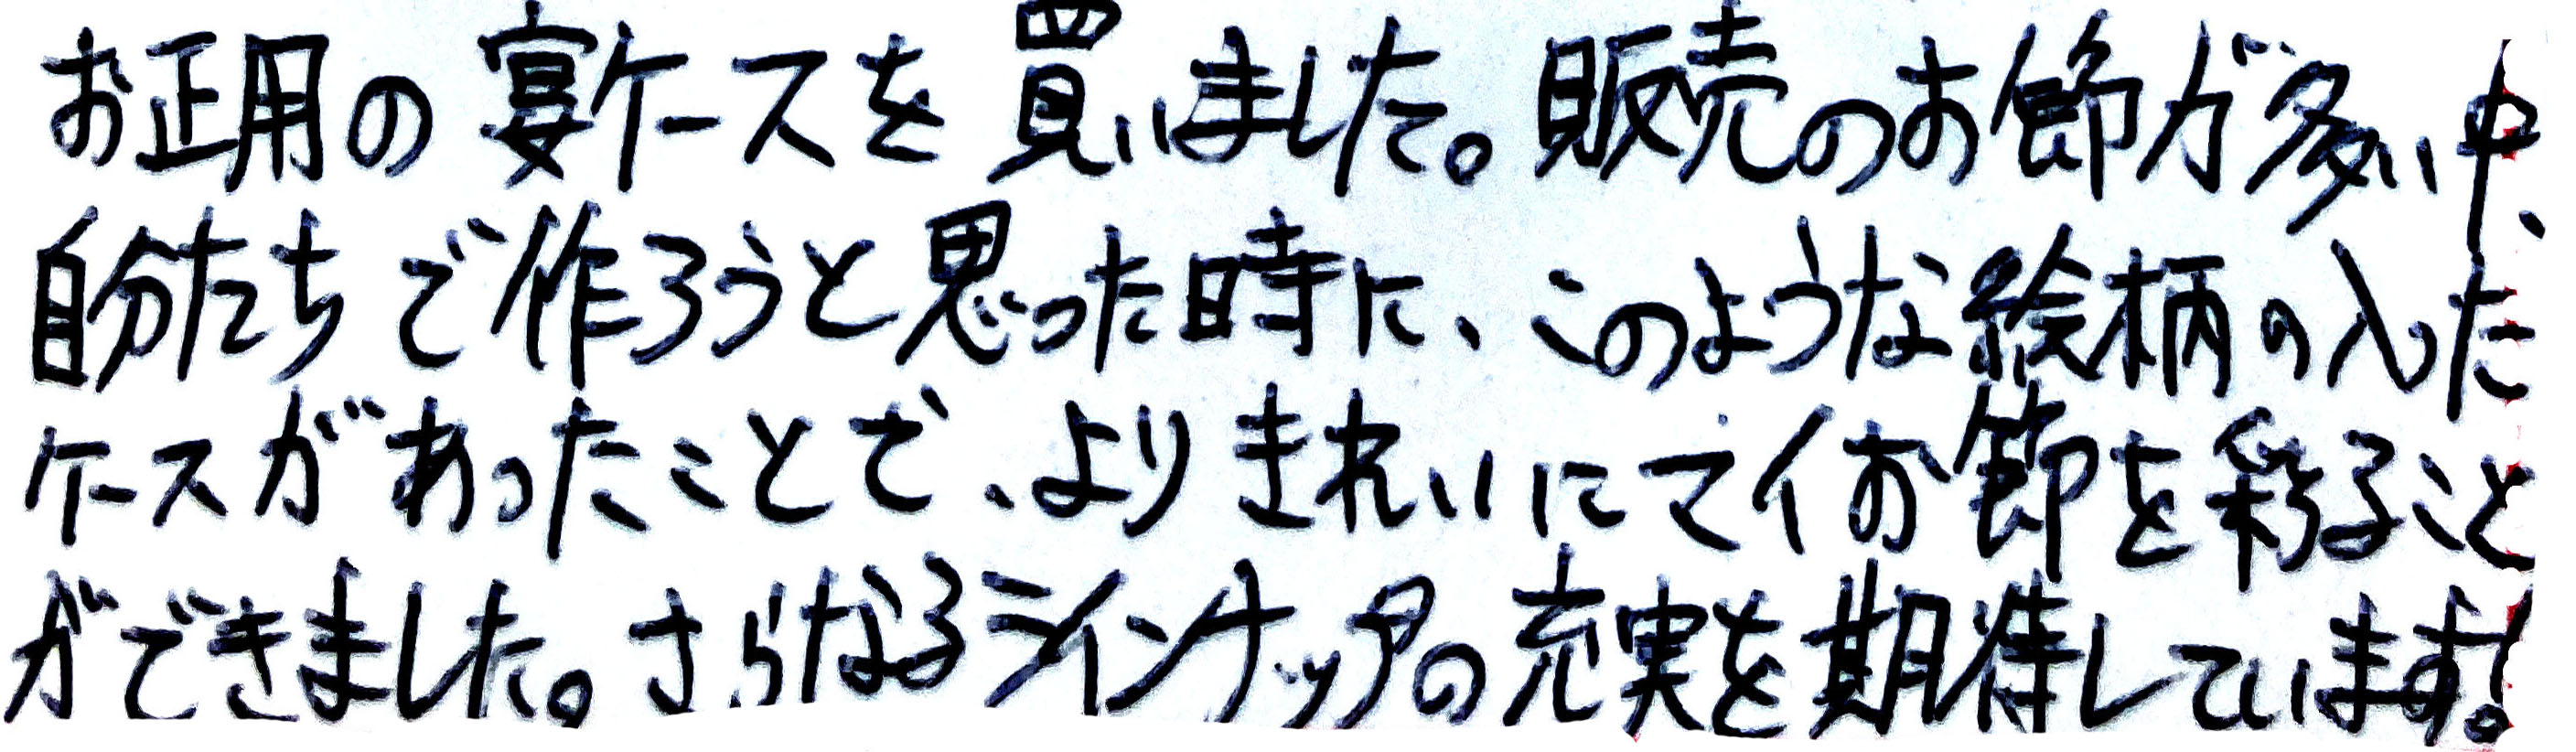 お正用の宴ケースを買いました。販売のお節が多い中、
自分たちで作ろうと思った時に、このような絵柄の入った
ケースがあったことで、よりきれいにマイお節を彩ること
ができました。さらなるラインナップの充実を期待しています!。